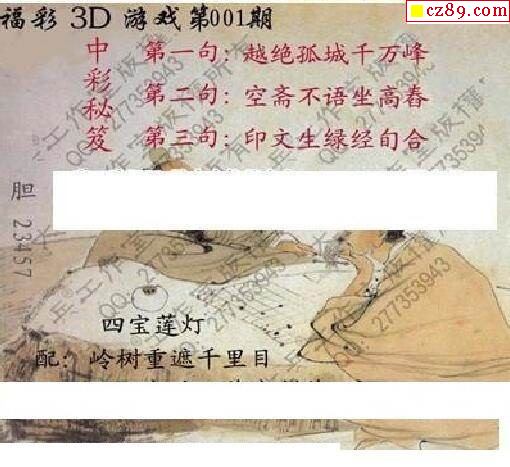 cz89.com
福彩 3D 游戏第001期
中彩秘笈
第一句：越绝孤城千万峰
第二句：空斋不语坐高舂
第三句：印文生绿经旬合
胆 23457
四宝莲灯
配：岭树重遮千里目
兵工作室版权所有
QQ：277353943